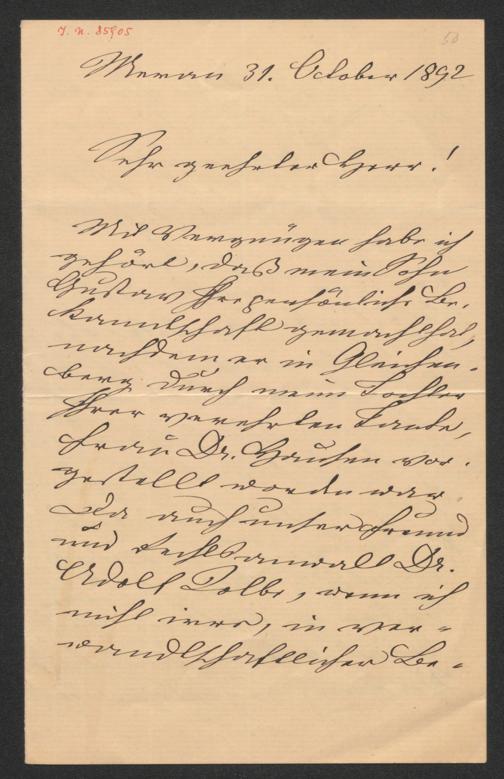 J. N. 85905
50
Meran 31. October 1892
Sehr geehrter Herr!
Mit Vergnügen habe ich
gehört, daß mein Sohn
Gustav Ihre persönliche Be-
kanntschaft gemacht hat,
nachdem er in Gleichen-
berg durch meine Tochter
Ihrer verehrten Tante,
Frau Dr. Hausen vor-
gestellt worden war.
Da auch unser Freund
und Rechtsanwalt Dr.
Adolf, wenn ich
nicht irre, in ver-
wandtschaftlicher Be-